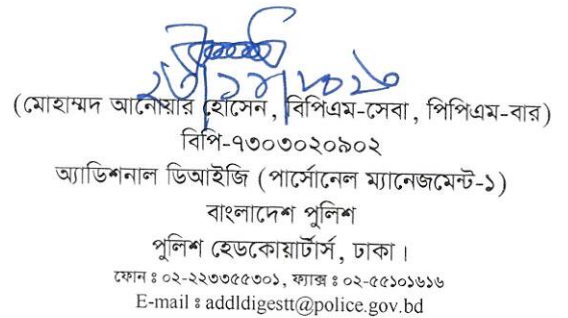 ২৩/১২/২০২৩
(মোহাম্মদ আনোয়ার হোসেন, বিপিএম-সেবা, পিপিএম-বার)
বিপি-৭৩০৩০২০৯০২
অ্যাডিশনাল ডিআইজি (পার্সোনেল ম্যানেজমেন্ট-১)
বাংলাদেশ পুলিশ
পুলিশ হেডকোয়ার্টার্স, ঢাকা।
ফোন ঃ ০২-২২৩৩৫৫৩০১, ফ্যাক্স ঃ ০২-৫৫১০১৬১৬
E-mail ঃ addldigestt@police.gov.bd